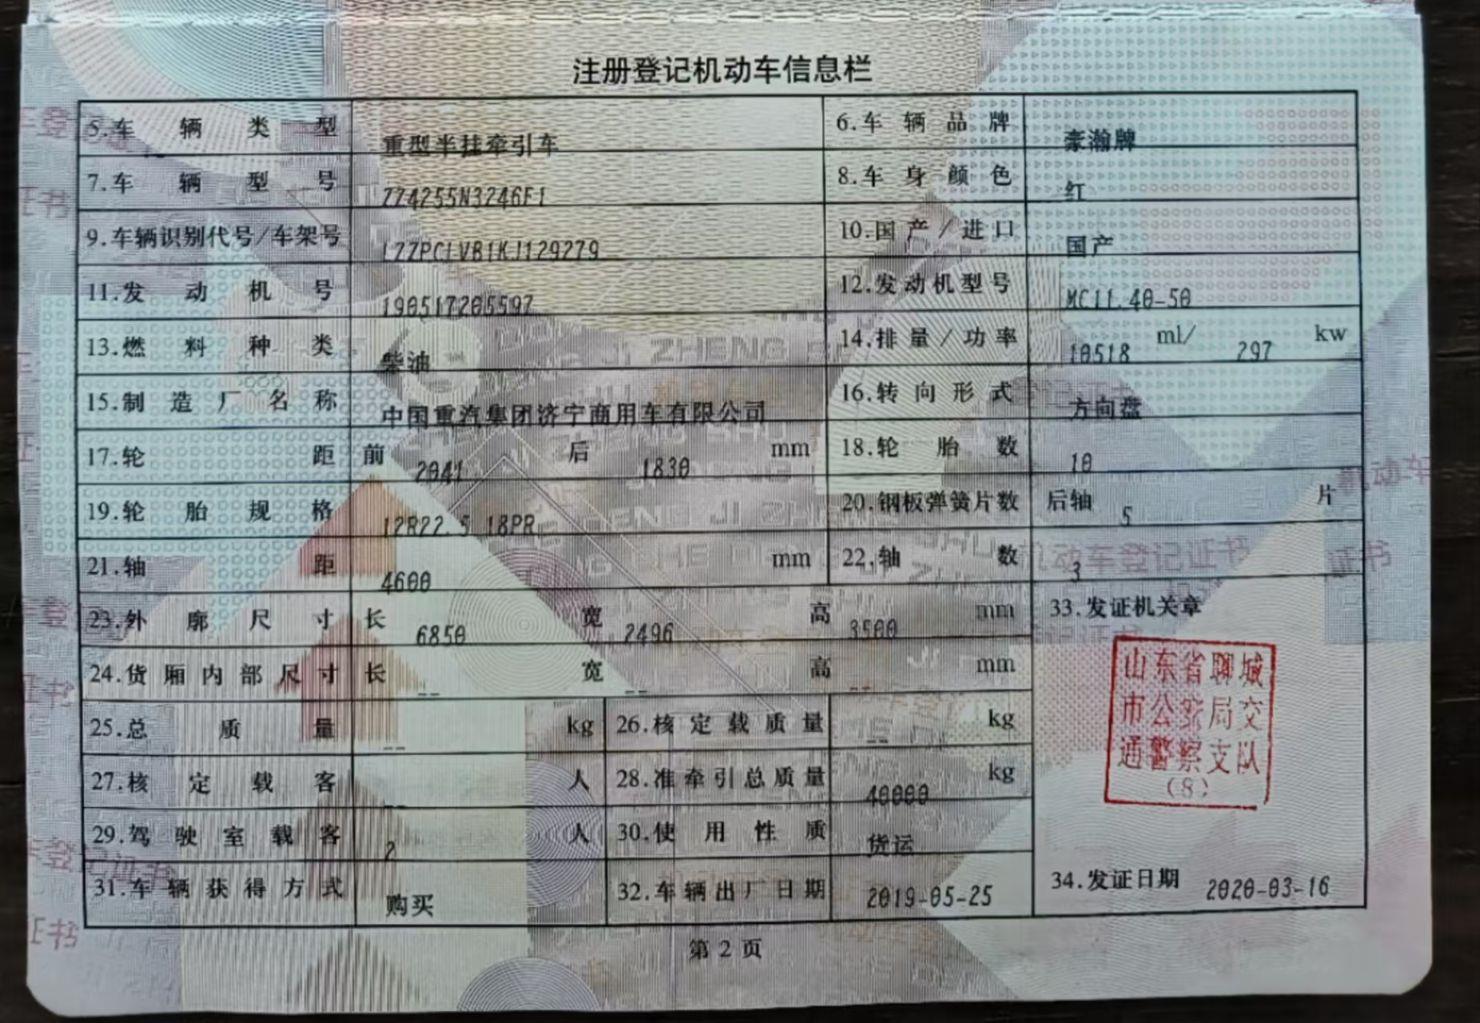 注册登记机动车信息栏
5.车辆类型 重型半挂牵引车 6.车辆品牌 豪瀚牌
7.车辆型号 ZZ4255N3246F1 8.车身颜色 红
9.车辆识别代号/车架号 LZZPCLVB1KJ129279 10.国产/进口 国产
11.发动机号 190517205597 12.发动机型号 MC11.40-50
13.燃料种类 柴油 14.排量/功率 10518 ml/ 297 kw
15.制造厂名称 中国重汽集团济宁商用车有限公司 16.转向形式 方向盘
17.轮距 前 2041 后 1830 mm 18.轮胎数 10
19.轮胎规格 12R22.5 18PR 20.钢板弹簧片数 后轴 5 片
21.轴距 4600 mm 22.轴数 3
23.外廓尺寸 长 6850 宽 2496 高 3500 mm 33.发证机关章
24.货厢内部尺寸 长 -- 宽 -- 高 -- mm
山东省聊城
市公安局交
通警察支队
(8)
25.总质量 -- kg 26.核定载质量 -- kg
27.核定载客 -- 人 28.准牵引总质量 40000 kg
29.驾驶室载客 2 人 30.使用性质 货运
31.车辆获得方式 购买 32.车辆出厂日期 2019-05-25 34.发证日期 2020-03-16
第 2 页